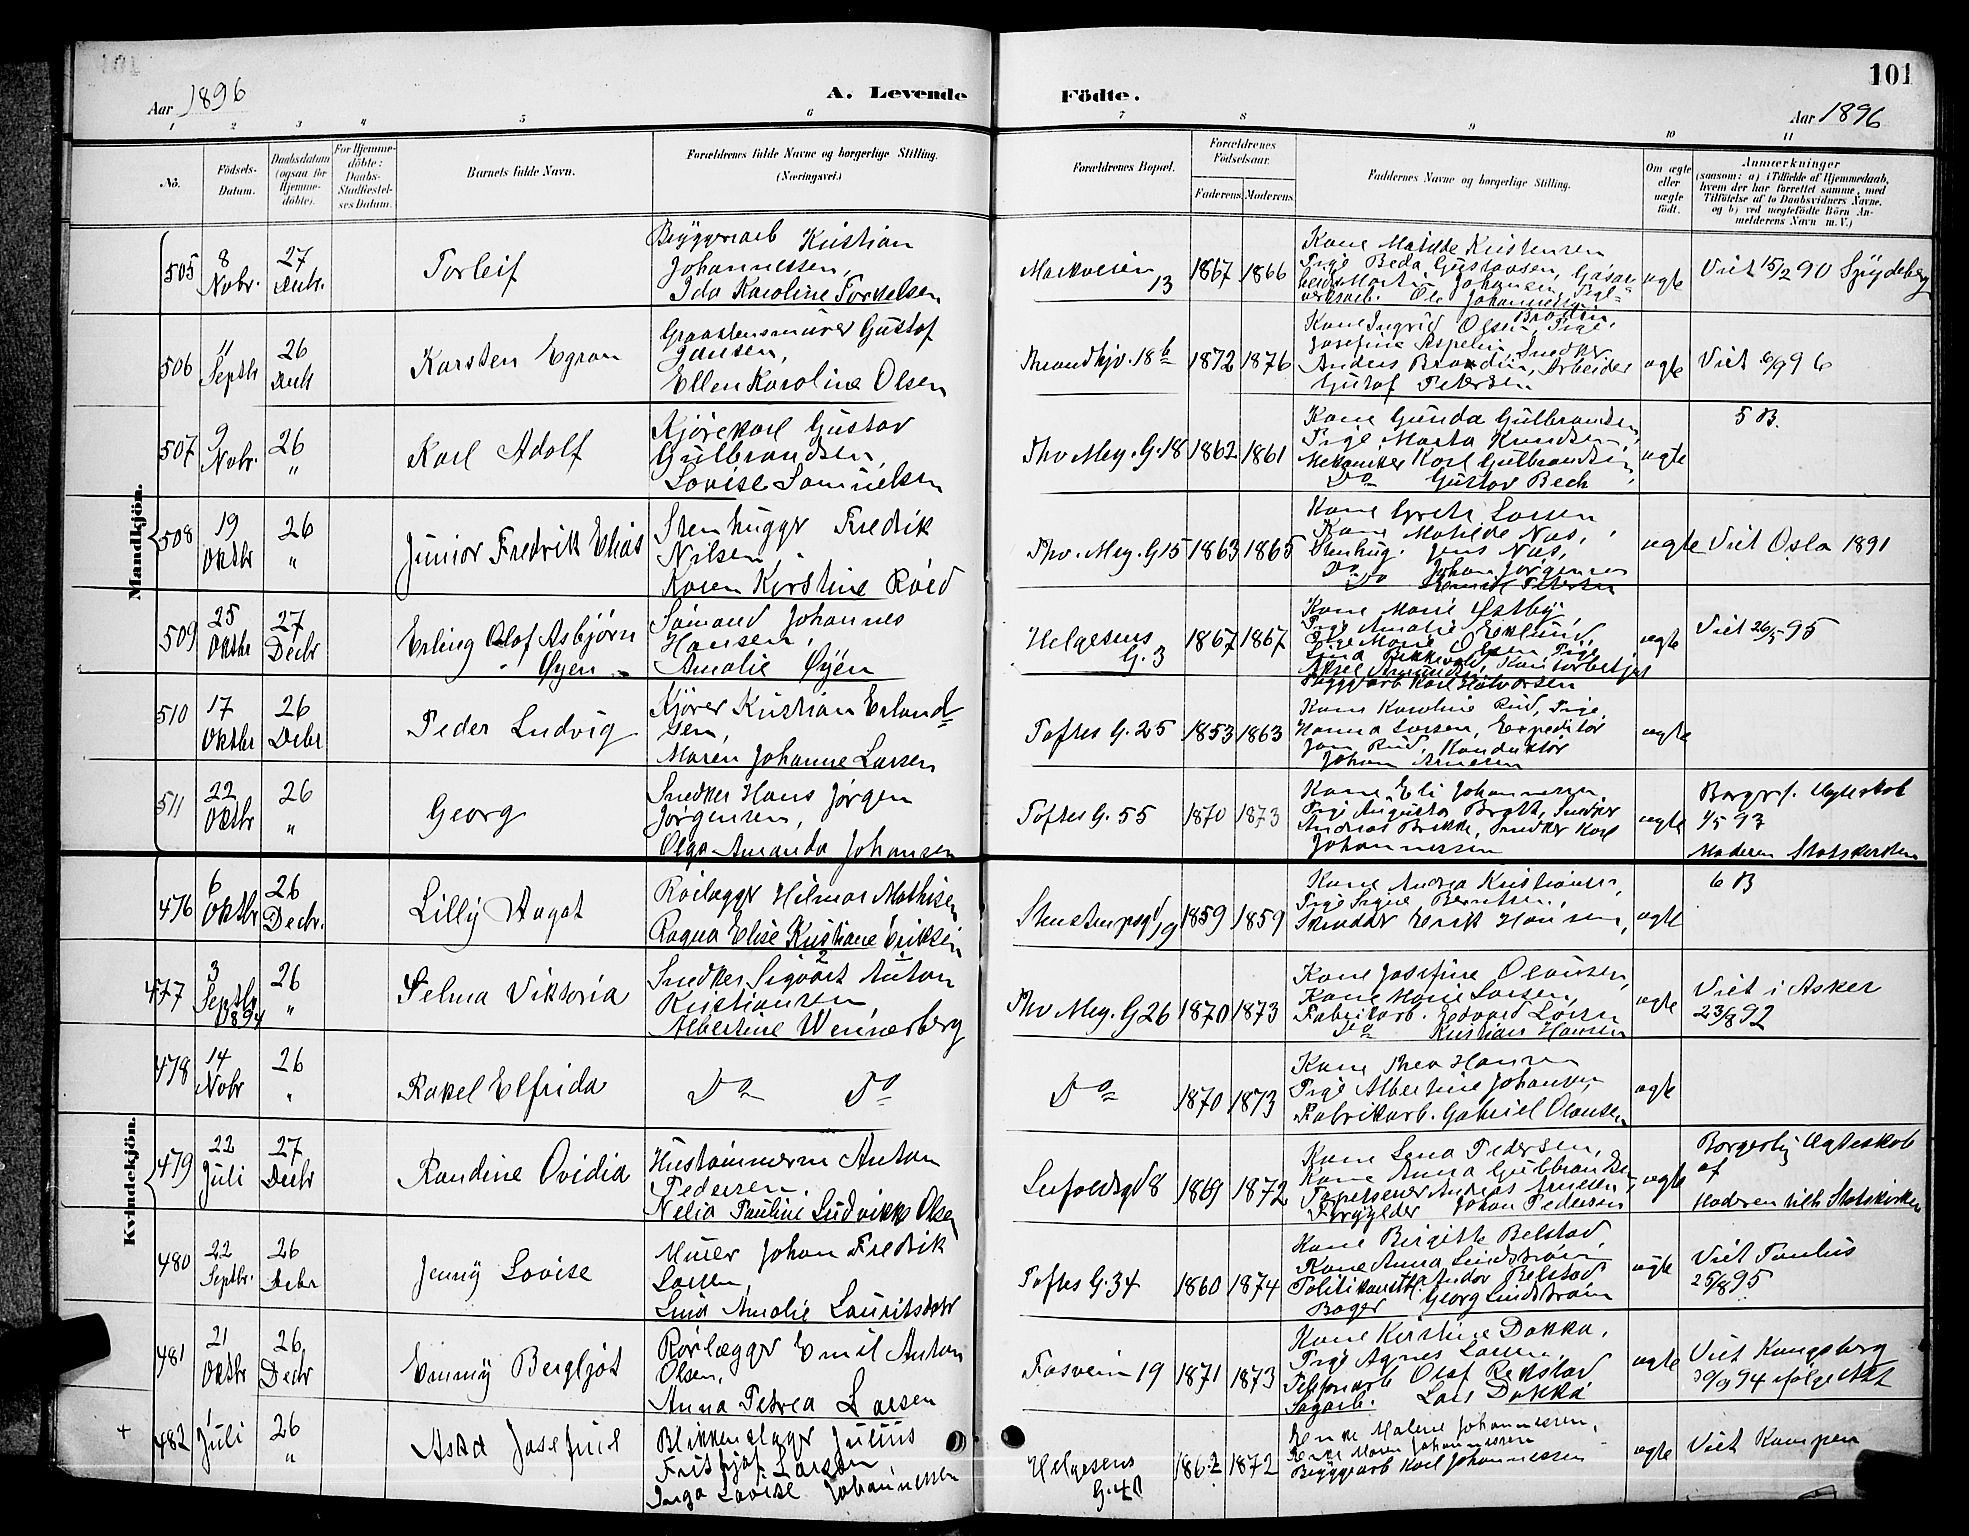 101
Aar 1896
A. Levende
Födte.
101
Aar 1896
1 2 3 4 5 6 7 8 9 10 11
No.
Födsels-Datum.
Daabsdatum (ogsaa for Hjemme-döbte).
For Hjemme-döbte: Daabs-Stadfæstel-ses Datum.
Barnets fulde Navn.
Forældrenes fulde Navne og borgerlige Stilling. (Næringsvei.)
Forældrenes Bopæl.
Forældrenes Födselsaar.
Faderens. Moderens.
Faddernes Navne og borgerlige Stilling.
Om ægte eller uægte födt.
Anmærkninger
(saasom: a) i Tilfælde af Hjemmedaab,
hvem der har forrettet samme, med
Tilföielse af to Daabsvidners Navne,
og b) ved uægtefödte Börn An-
melderens Navn m. V.)
Mandkjön.
505 8 Nobr. 27 Decbr. Torleif
Bryggeriarb Kristian
Johannessen,
Ida Karoline Torkelsen
Markveien 13 1867 1866
Kone Matilde Kristensen
Pige Beda Gustavsen,
Martin Johansen,
Ole Johannessen
ægte Viet 15/2 90 Spydeberg
506 11 Septbr 26 Decbr Karsten Egron
Graastensmurer Gustof
Jansen,
Ellen Karoline Olsen
18b 1872 1876
Kone Ingrid Olsen, Pige
Josefine Aspelin, Snedker
Anders Brodin, Arbeider
Gustaf Petersen
ægte Viet
507 9 Nobr. 26 " Karl Adolf
Kjørekarl Gustav
Gulbrandsen,
Lovise Samuelsen
Thv. Mey. G. 18 1862 1861
Kone Gunda Gulbrandsen,
Pige Marta Knudsen,
Mekaniker Karl Gulbrandsen,
Do Gustav Bech
ægte 5 B.
508 19 Oktbr 26 " Junior Fredrik Elias
Stenhugger Fredrik
Nilsen
Karen Kirstine Röed
Thv. Mey. G 15 1863 1865
Kone Grete Larsen
Kone Matilde Næs,
Stenhug. Jens Næs,
Do Johan Jørgensen
Do Petersen
ægte Viet Oslo 1891
509 25 Oktbr 27 Decbr Erling Olaf Asbjørn
Øyen
Sömand Johannes
Hansen,
Amalie Øyen
Helgesens G. 3 1867 1867
Kone Marie Østby,
Pige Amalie Eklund,
Pige Marie Olsen, Pige
Lina
Aksel Amundsen, Kontorbetjent
Byggearb Karl Halvorsen
ægte Viet 26/5 95
510 17 Oktbr 26 Decbr Peder Ludvig
Kjører Kristian Erland-
sen,
Maren Johanne Larsen
Toftes G. 25 1853 1863
Kone Karoline Rud, Pige
Hanna Larsen, Expeditör
Jon Rud, Konduktör
Johan Arnesen
ægte
511 22 Oktbr 26 " Georg
Snedker Hans Jörgen
Jörgensen,
Olga Amanda Johansen
Toftes G. 55 1870 1873
Kone Eli Johannessen,
Pige Augusta Broth, Snedker
Andreas Brekke, Snedker Karl
Johannessen
ægte Borgerl. Ægteskab
1/5 93
Moderen Statskirken
Kvindekjön.
476 6 Oktbr 26 Decbr. Lilly Aagot
Rörlægger Hilmar Mathisen
Ragna Elise Kristiane Eriksen
1859 1859
Kone Andrea Kristiansen,
Pige Signe Berntsen,
Skrædder Erik Hansen,
ægte 6 B
477 3 Septbr 1894 26 " Selma Viktoria
Snedker Sigvart Anton
Kristiansen
Albertine Wennerberg
Thv Mey. G 26 1870 1873
Kone Josefine Olausen,
Kone Marie Larsen,
Fabrikarb. Edvard Larsen
Do Kristian Hansen
ægte Viet i Asker
23/8 92
478 14 Nobr 26 " Rakel Elfrida
Do Do
Do 1870 1873
Kone Thea Hansen
Pige Albertine Johansen,
Fabrikarb. Gabriel Olausen
ægte
479 22 Juli 27 Decbr Randine Ovidia
Hustömmerm Anton
Pedersen,
Nelia Pauline Ludvikke Olsen
8 1869 1872
Kone Lena Pedersen,
Kone Anna Gulbrandsen,
Tapetserer Andreas Arnesen,
Forgylder Johan Pedersen
ægte Borgerlig Ægteskab
af
Moderen tilh Statskirken
480 22 Septbr. 26 Debr Jenny Lovise
Murer Johan Fredrik
Larsen
Lina Amalie Lauritsdatr
Toftes G. 34 1860 1874
Kone Birgitte Belstad,
Kone Anna Lindstrøm
Politikonst. Andor Belstad,
Bager Georg Lindstrøm
ægte Viet Paulus
25/8 95
481 21 Oktbr 26 Decbr Emmy Bergljot
Rörlægger Emil Anton
Olsen,
Anna Petrea Larsen
Fosveien 19 1871 1873
Kone Kirstine Dokka,
Pige Agnes Larsen,
Telefonarb Olaf Rekstad
Sagarb. Lars Dokka
ægte Viet Kongsberg
30/9 94 ifølge Att
+ 482 1 Juli 26 " Asta Josefine
Blikkenslager Julius
Fritjof Larsen
Inga Lovise Johannessen
Helgesens G. 40 1862 1872
Enke Malene Johannessen,
Enke Maren Johannessen
Bryggearb Karl Johannessen
ægte Viet Kampen